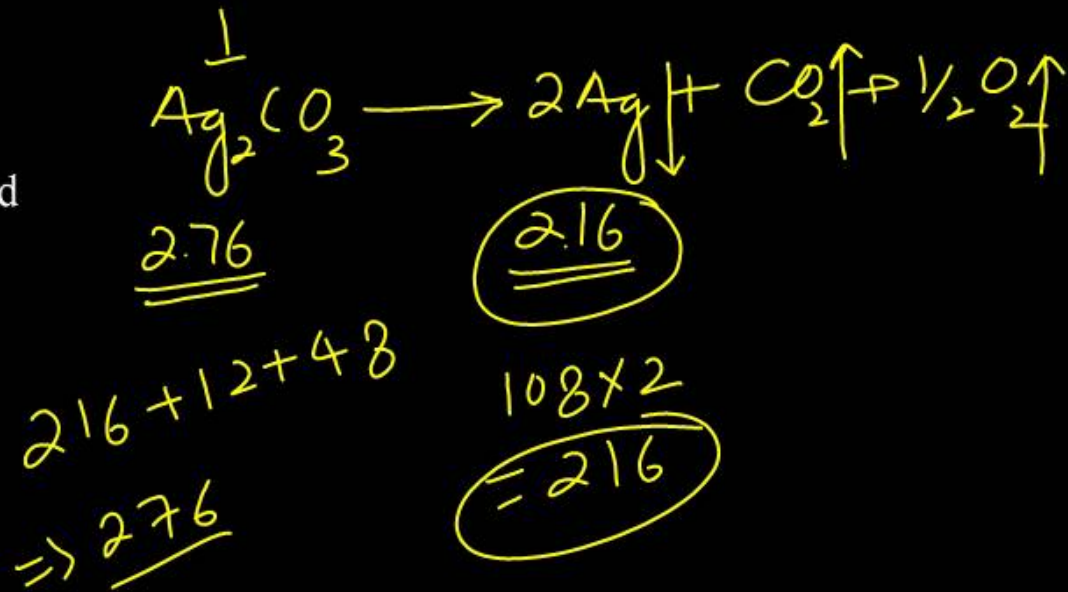 1
Ag₂CO₃ → 2Ag↓ + CO₂↑ + 1/2 O₂↑
d
2.76 2.16
216+12+48 108×2
=216
⇒ 276